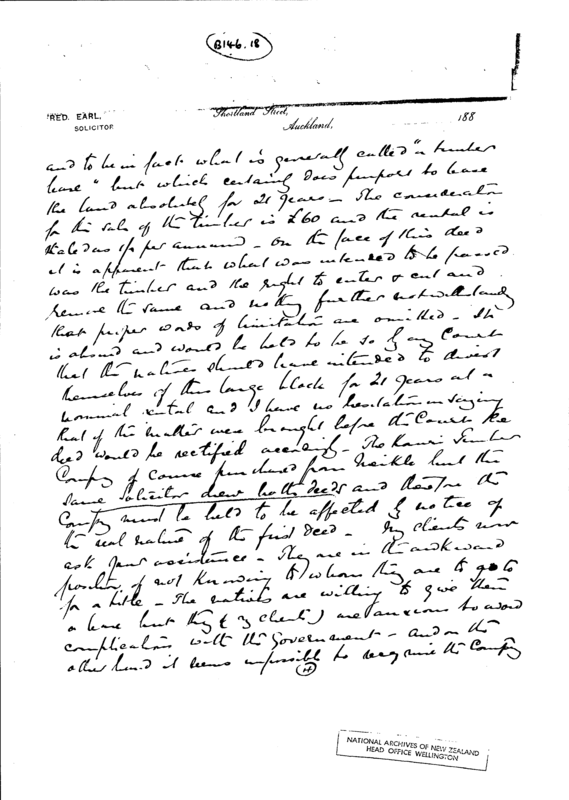 B146.18
FRED. EARL,
SOLICITOR
Shortland Street,
Auckland, 188
and to be in fact what is generally called "a timber
lease" but which certainly does purport to lease
the land absolutely for 21 years - The consideration
for the sale of the timber is £60 and the rental is
stated as 1/- per annum - On the face of this deed
it is apparent that what was intended to be passed
was the timber and the right to enter & cut and
remove the same and nothing further notwithstanding
that proper words of limitation are omitted - It
is absurd and would be held to be so by any Court
that the natives should have intended to divest
themselves of this large block for 21 years at a
nominal rental and I have no hesitation in saying
that if the matter were brought before the Courts the
deed would be rectified accordingly - The Kauri Timber
Company of course purchased from Meikle but the
same solicitor drew both deeds and therefore the
Company must be held to be affected by notice of
the real nature of the first deed - My clients now
ask your assistance - They are in the awkward
position of not knowing to whom they are to go to
for a title - The natives are willing to give them
a lease but they (my clients) are anxious to avoid
complications with the Government - and on the
other hand it seems impossible to recognise the Company
NATIONAL ARCHIVES OF NEW ZEALAND
HEAD OFFICE WELLINGTON